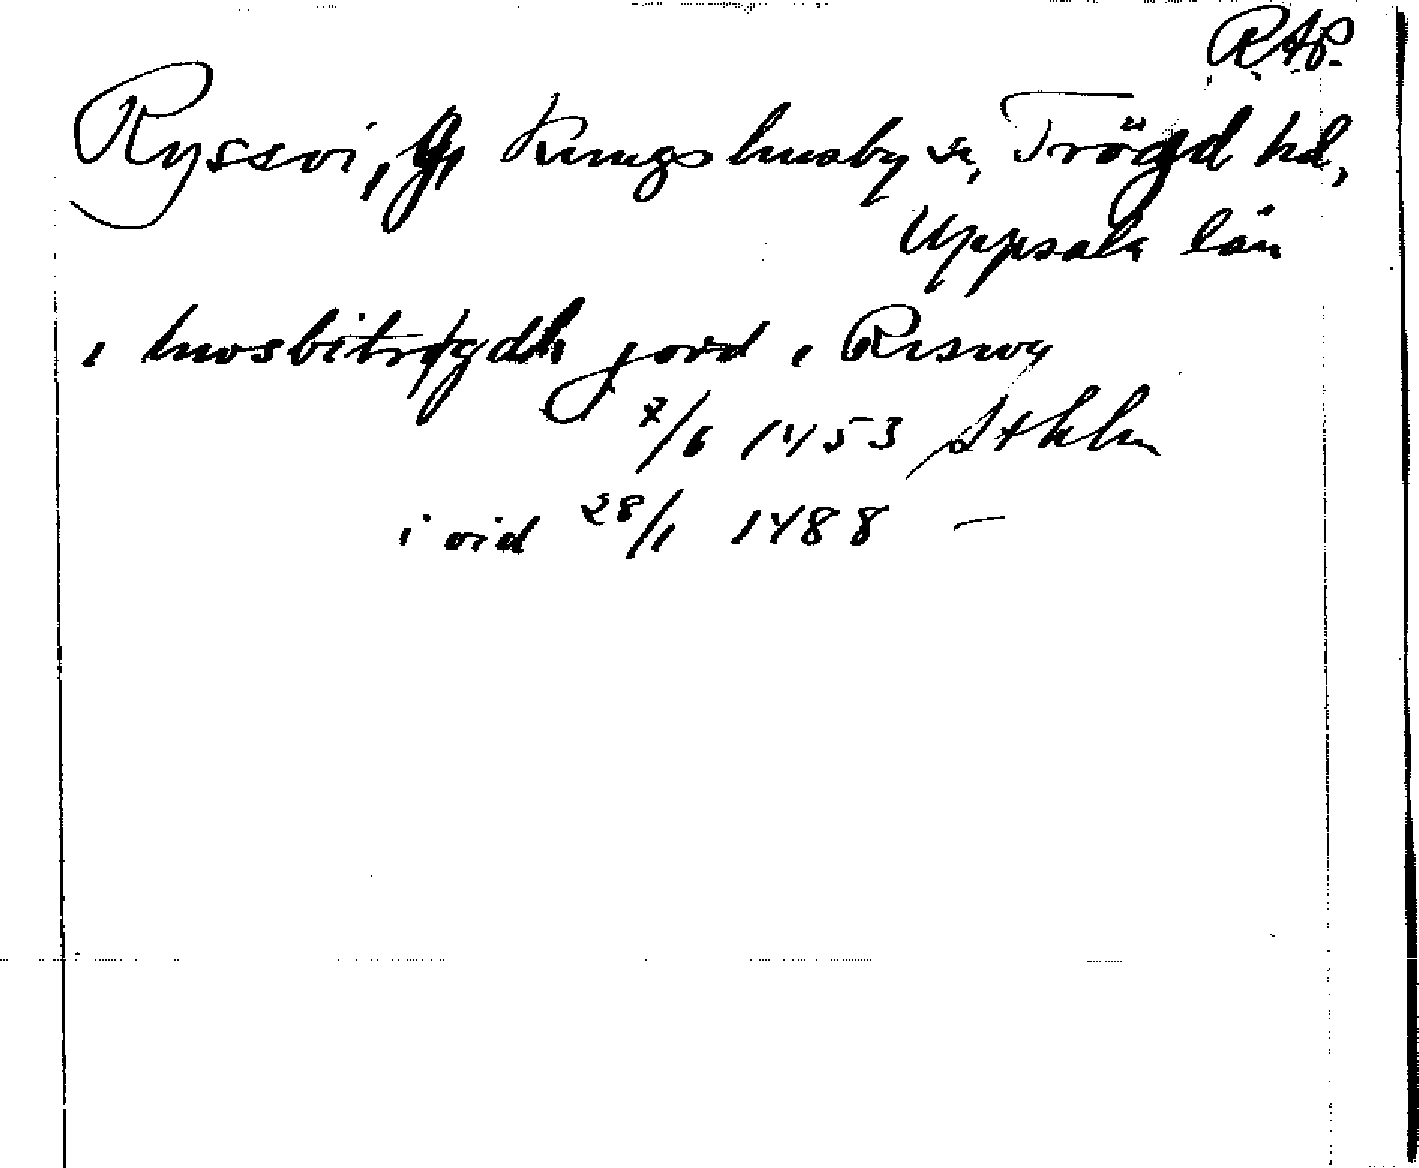 RAP.
Ryssvi, g, Kungshusby sn, Trögd hd,
Uppsala län
i husbitrøgdh jord i Riswy
7/6 1453 Sthlm
i vid 28/1 1488 —